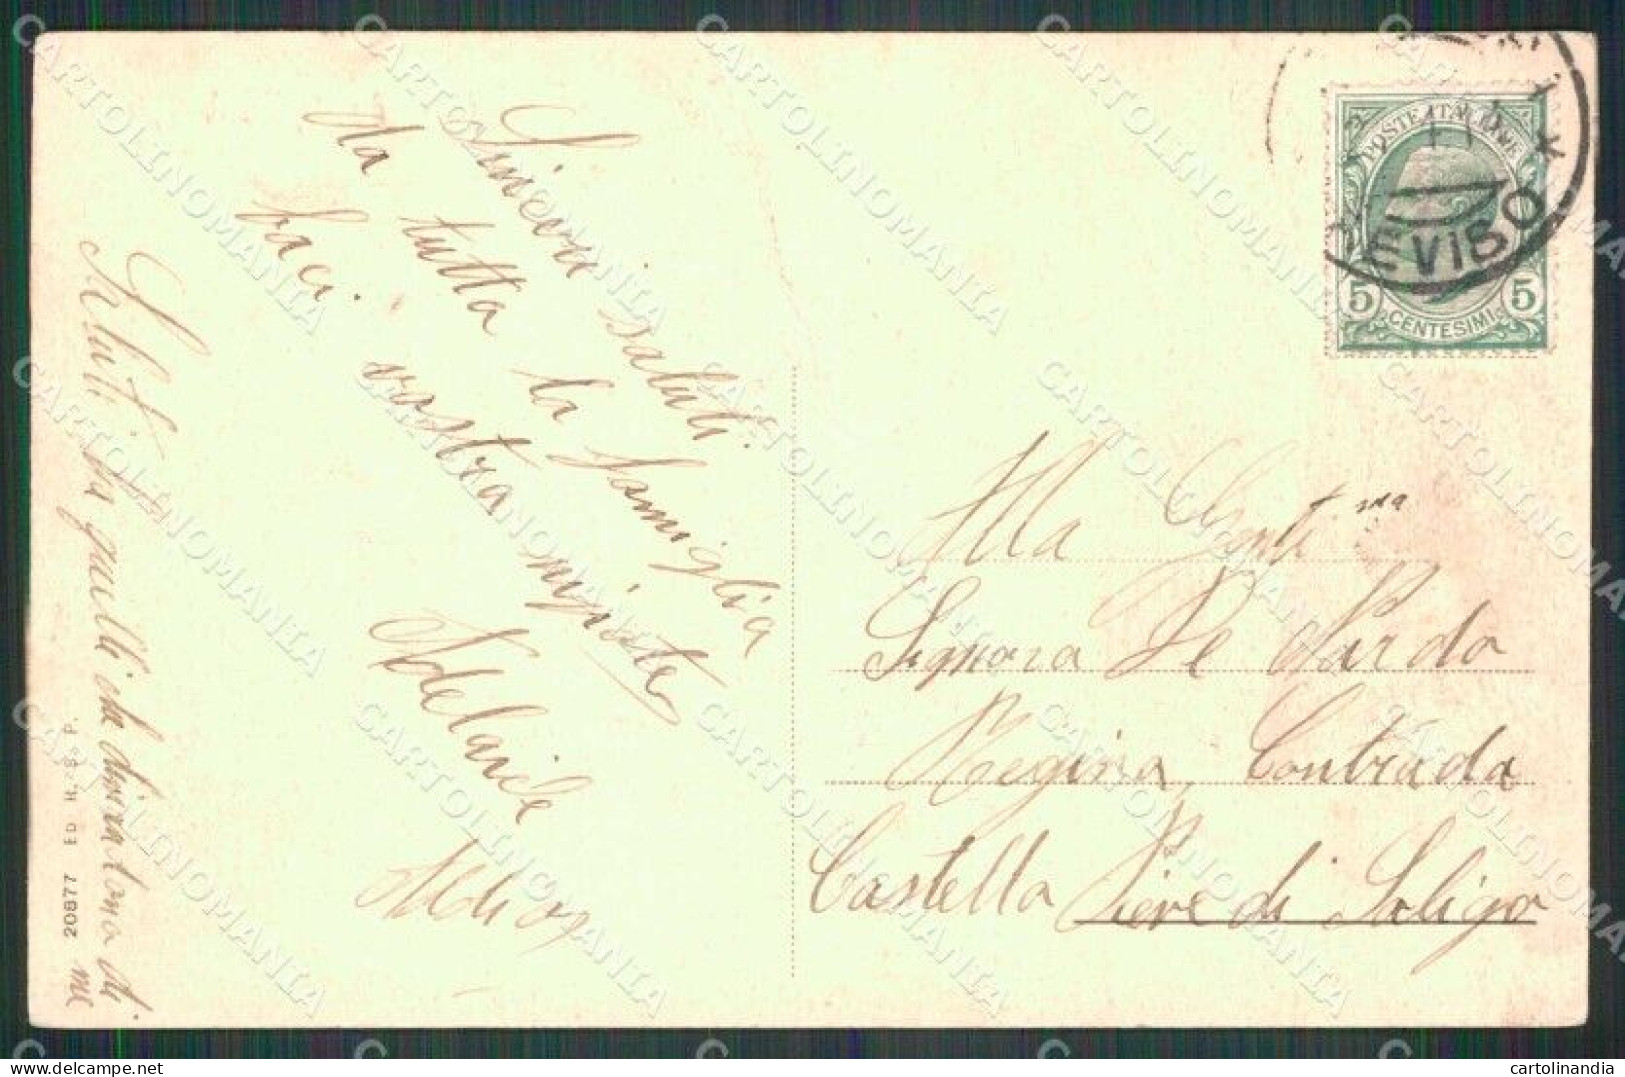 Sinceri saluti
da tutta la famiglia
baci. vostra
Adelaide
Saluti da quelli da
20877 ED. H. S. P.
POSTE ITALIANE
5 CENTESIMI 5
EVIBO
Alla Gent ma
Signora De Nardo
Regina Contrada
Castella Pieve di Soligo
CARTOLINOMANIA
cartolinandia